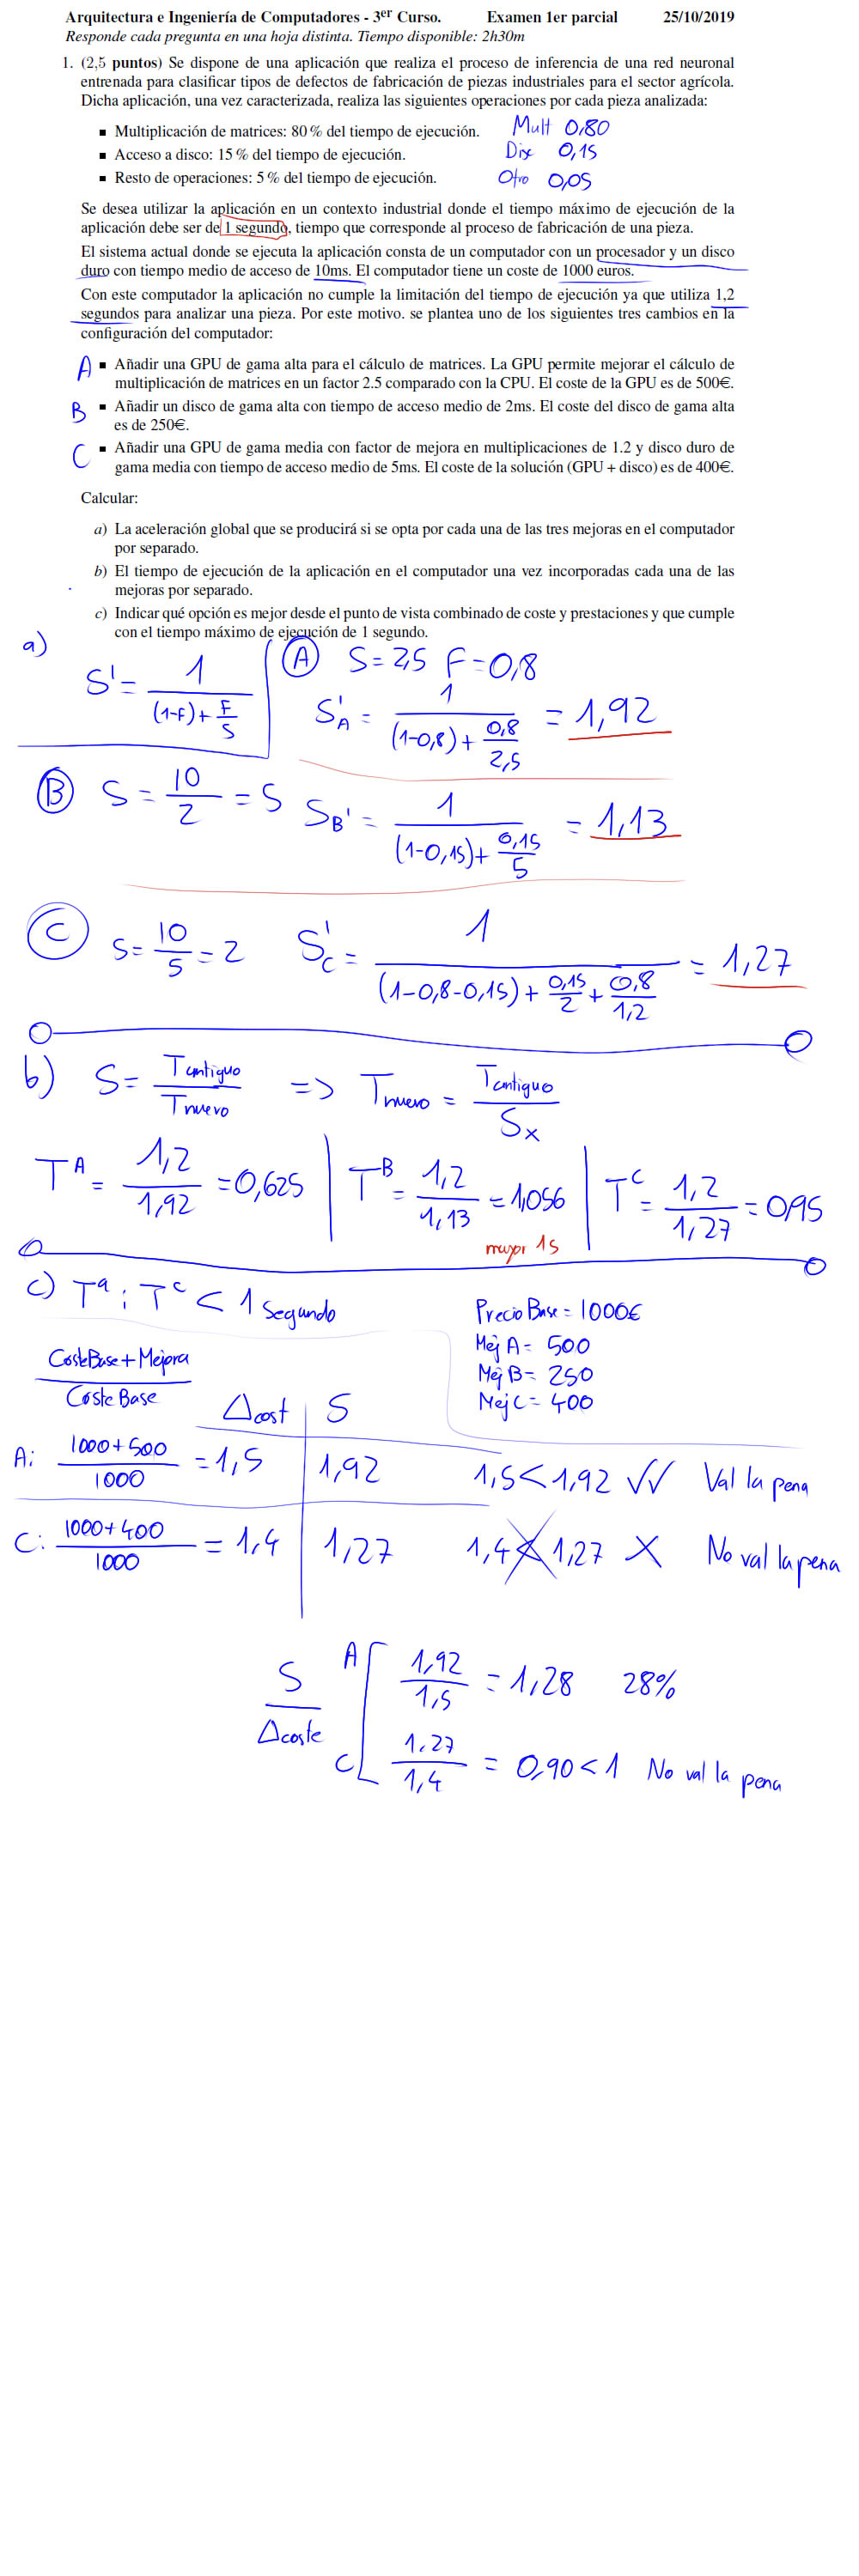 Arquitectura e Ingeniería de Computadores - 3er Curso. Examen 1er parcial 25/10/2019
Responde cada pregunta en una hoja distinta. Tiempo disponible: 2h30m
1. (2,5 puntos) Se dispone de una aplicación que realiza el proceso de inferencia de una red neuronal
entrenada para clasificar tipos de defectos de fabricación de piezas industriales para el sector agrícola.
Dicha aplicación, una vez caracterizada, realiza las siguientes operaciones por cada pieza analizada:
▪ Multiplicación de matrices: 80 % del tiempo de ejecución. Mult 0,80
▪ Acceso a disco: 15 % del tiempo de ejecución. Disc 0,15
▪ Resto de operaciones: 5 % del tiempo de ejecución. Otro 0,05
Se desea utilizar la aplicación en un contexto industrial donde el tiempo máximo de ejecución de la
aplicación debe ser de 1 segundo, tiempo que corresponde al proceso de fabricación de una pieza.
El sistema actual donde se ejecuta la aplicación consta de un computador con un procesador y un disco
duro con tiempo medio de acceso de 10ms. El computador tiene un coste de 1000 euros.
Con este computador la aplicación no cumple la limitación del tiempo de ejecución ya que utiliza 1,2
segundos para analizar una pieza. Por este motivo. se plantea uno de los siguientes tres cambios en la
configuración del computador:
A ▪ Añadir una GPU de gama alta para el cálculo de matrices. La GPU permite mejorar el cálculo de
multiplicación de matrices en un factor 2.5 comparado con la CPU. El coste de la GPU es de 500€.
B ▪ Añadir un disco de gama alta con tiempo de acceso medio de 2ms. El coste del disco de gama alta
es de 250€.
C ▪ Añadir una GPU de gama media con factor de mejora en multiplicaciones de 1.2 y disco duro de
gama media con tiempo de acceso medio de 5ms. El coste de la solución (GPU + disco) es de 400€.
Calcular:
a) La aceleración global que se producirá si se opta por cada una de las tres mejoras en el computador
por separado.
b) El tiempo de ejecución de la aplicación en el computador una vez incorporadas cada una de las
mejoras por separado.
c) Indicar qué opción es mejor desde el punto de vista combinado de coste y prestaciones y que cumple
con el tiempo máximo de ejecución de 1 segundo.
a)
S' = 1 / ((1-F) + F/S)
A S = 2,5 F = 0,8
S'A = 1 / ((1-0,8) + 0,8/2,5) = 1,92
B S = 10/2 = 5 SB' = 1 / ((1-0,15) + 0,15/5) = 1,13
C S = 10/5 = 2 S'C = 1 / ((1-0,8-0,15) + 0,15/2 + 0,8/1,2) = 1,27
b) S = Tantiguo / Tnuevo => Tnuevo = Tantiguo / Sx
TA = 1,2/1,92 = 0,625 | TB = 1,2/1,13 = 1,056 | TC = 1,2/1,27 = 0,95
mayor 1s
c) Ta i Tc < 1 segundo
Precio Base = 1000€
Mej A = 500
Mej B = 250
Mej C = 400
CosteBase + Mejora / Coste Base
Δcost | S
A: 1000+500 / 1000 = 1,5 | 1,92 1,5 < 1,92 ✓✓ Val la pena
C: 1000+400 / 1000 = 1,4 | 1,27 1,4 < 1,27 X No val la pena
S / Δcoste
A 1,92 / 1,5 = 1,28 28%
C 1,27 / 1,4 = 0,90 < 1 No val la pena